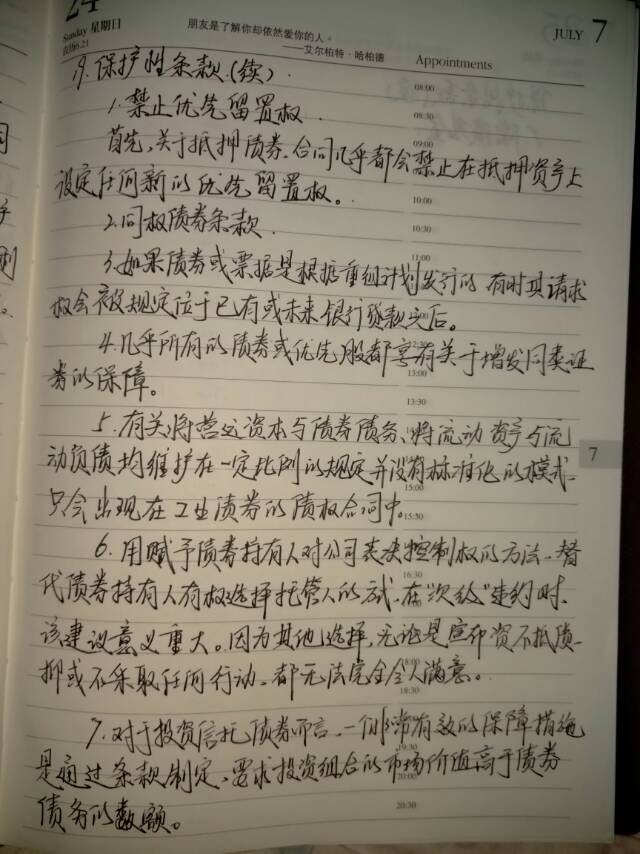 24
Sunday 星期日
农历6.21
朋友是了解你却依然爱你的人。
——艾尔柏特·哈柏德
Appointments
JULY 7
9.保护性条款.(续).
08:00
1.禁止优先留置权.
08:30
首先,关于抵押债券.合同几乎都会禁止在抵押资产上
09:00
设定任何新的优先留置权。
10:00
2.同权债券条款.
10:30
11:00
3.如果债券或票据是根据重组计划发行的,有时其请求
权会被规定位于已有或未来银行贷款之后。
4.几乎所有的债券或优先股都享有关于增发同类证
13:00
券的保障。
13:30
5.有关将营运资本与债券债务、将流动资产与流
7
动负债均维护在一定比例的规定并没有标准化的模式.
15:00
只会出现在工业债券的债权合同中.
15:30
6.用赋予债券持有人对公司表决控制权的方法.替
16:30
代债券持有人有权选择托管人的方式.在"次级"违约时.
该建议意义重大。因为其他选择,无论是宣布资不抵债.
18:00
抑或不采取任何行动.都无法完全令人满意。
18:30
7.对于投资信托债券而言.一个非常有效的保障措施
19:30
是通过条款制定.要求投资组合的市场价值高于债券
20:00
债务的数额。
20:30